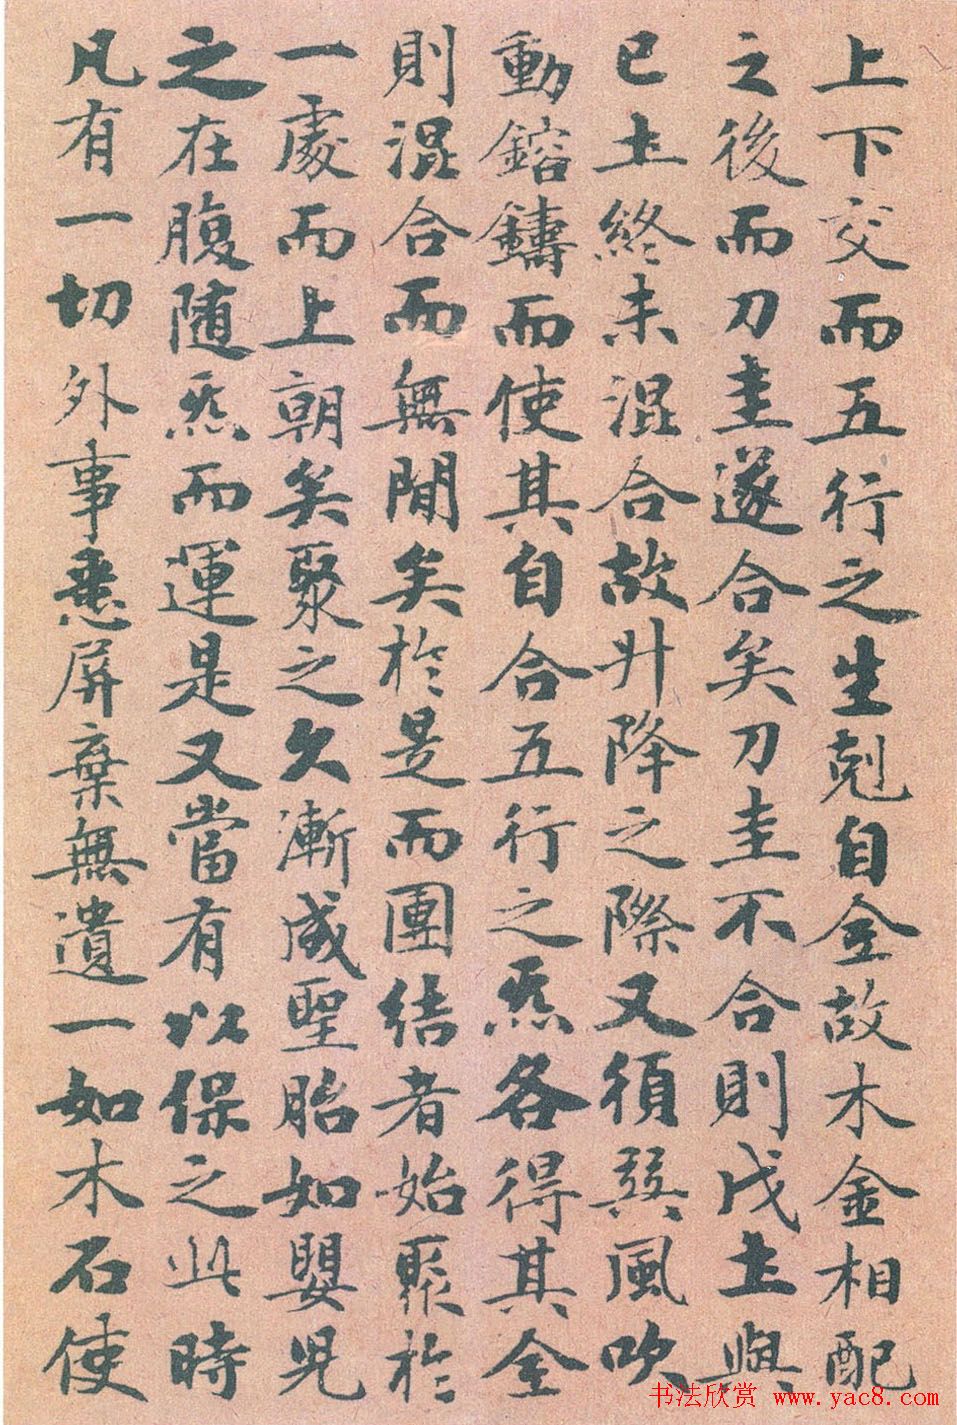 上下交而五行之生剋自全故木金相配
之後而刀圭遂合矣刀圭不合則戊土與
已土終未混合故升降之際又須巽風吹
動鎔鑄而使其自合五行之炁各得其全
則混合而無閒矣於是而團結者始聚於
一處而上朝矣聚之久漸成聖胎如嬰兒
之在腹随炁而運是又當有以保之此時
凡有一切外事悉屏棄無遺一如木石使
书法欣赏 www.yac8.com